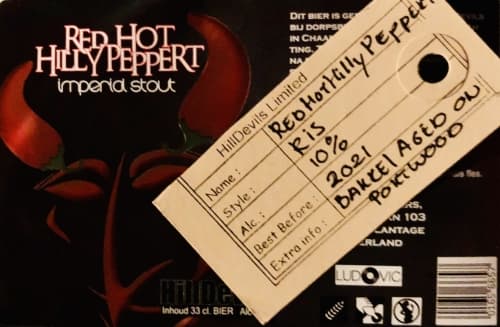 Red Hot
Hilly Peppert
imperial stout
HillDevils Limited
Name : Red Hot Hilly Peppert
Style : RIS
Alc. : 10%
Best Before : 2021
Extra info : Barrel Aged on
Portwood
Dit bier is
bij dorps
in Chaam
ting.
103
LANTAGE
ERLAND
LUDOVIC
HillDe
Inhoud 33 cl. BIER Alc